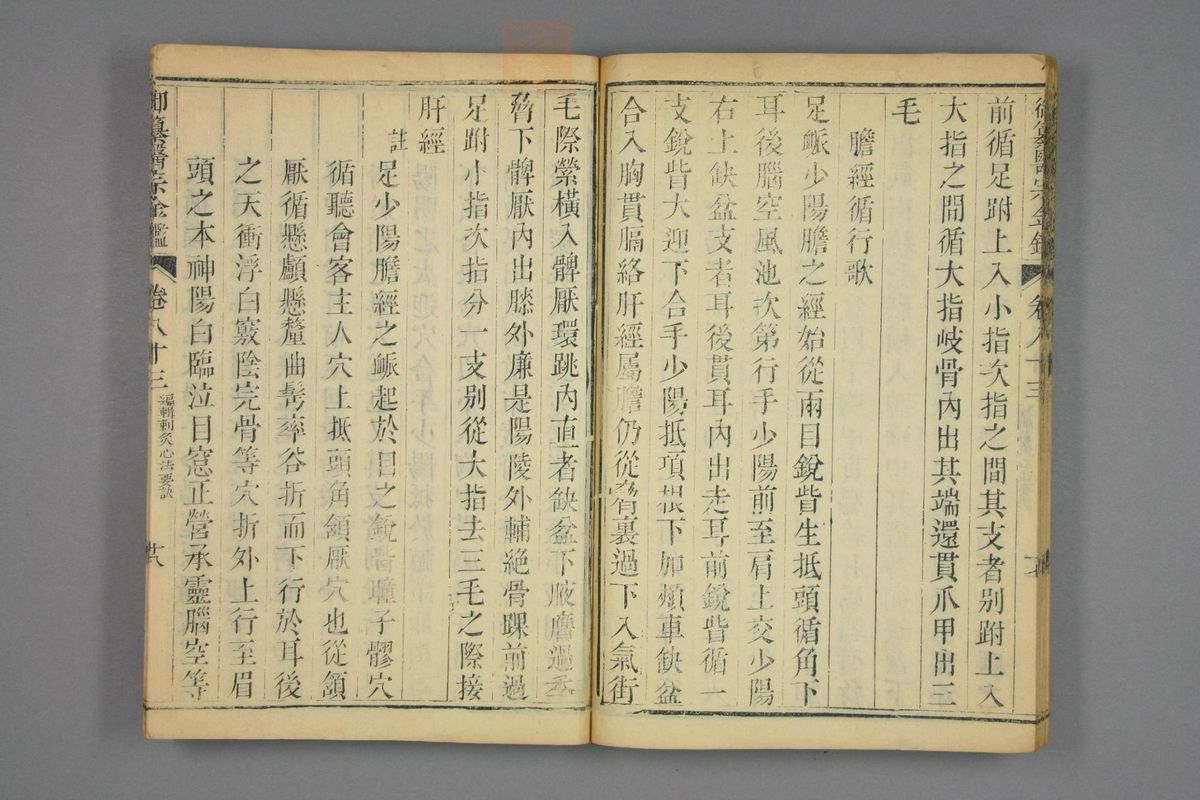 御纂醫宗金鑑 卷八十三
前循足跗上入小指次指之間其支者别跗上入
大指之間循大指歧骨內出其端還貫爪甲出三
毛
膽經循行歌
足脈少陽膽之經始從兩目銳眥生抵頭循角下
耳後腦空風池次第行手少陽前至肩上交少陽
右上缺盆支者耳後貫耳內出走耳前銳眥循一
支銳眥大迎下合手少陽抵項根下加頰車缺盆
合入胸貫膈絡肝經屬膽仍從脅裏過下入氣街
毛際縈橫入髀厭環跳內直者缺盆下腋膺過季
脅下髀厭內出膝外廉是陽陵外輔絕骨踝前過
足跗小指次指分一支别從大指去三毛之際接
肝經
註 足少陽膽經之脈起於目之銳眥瞳子髎穴
循聽會客主人穴上抵頭角頷厭穴也從頷
厭循懸顱懸釐曲髩率谷折而下行於耳後
之天衝浮白竅陰完骨等穴折外上行至眉
頭之本神陽白臨泣目窓正營承靈腦空等
御纂醫宗金鑑 卷八十三 編輯刺灸心法要訣 廿八